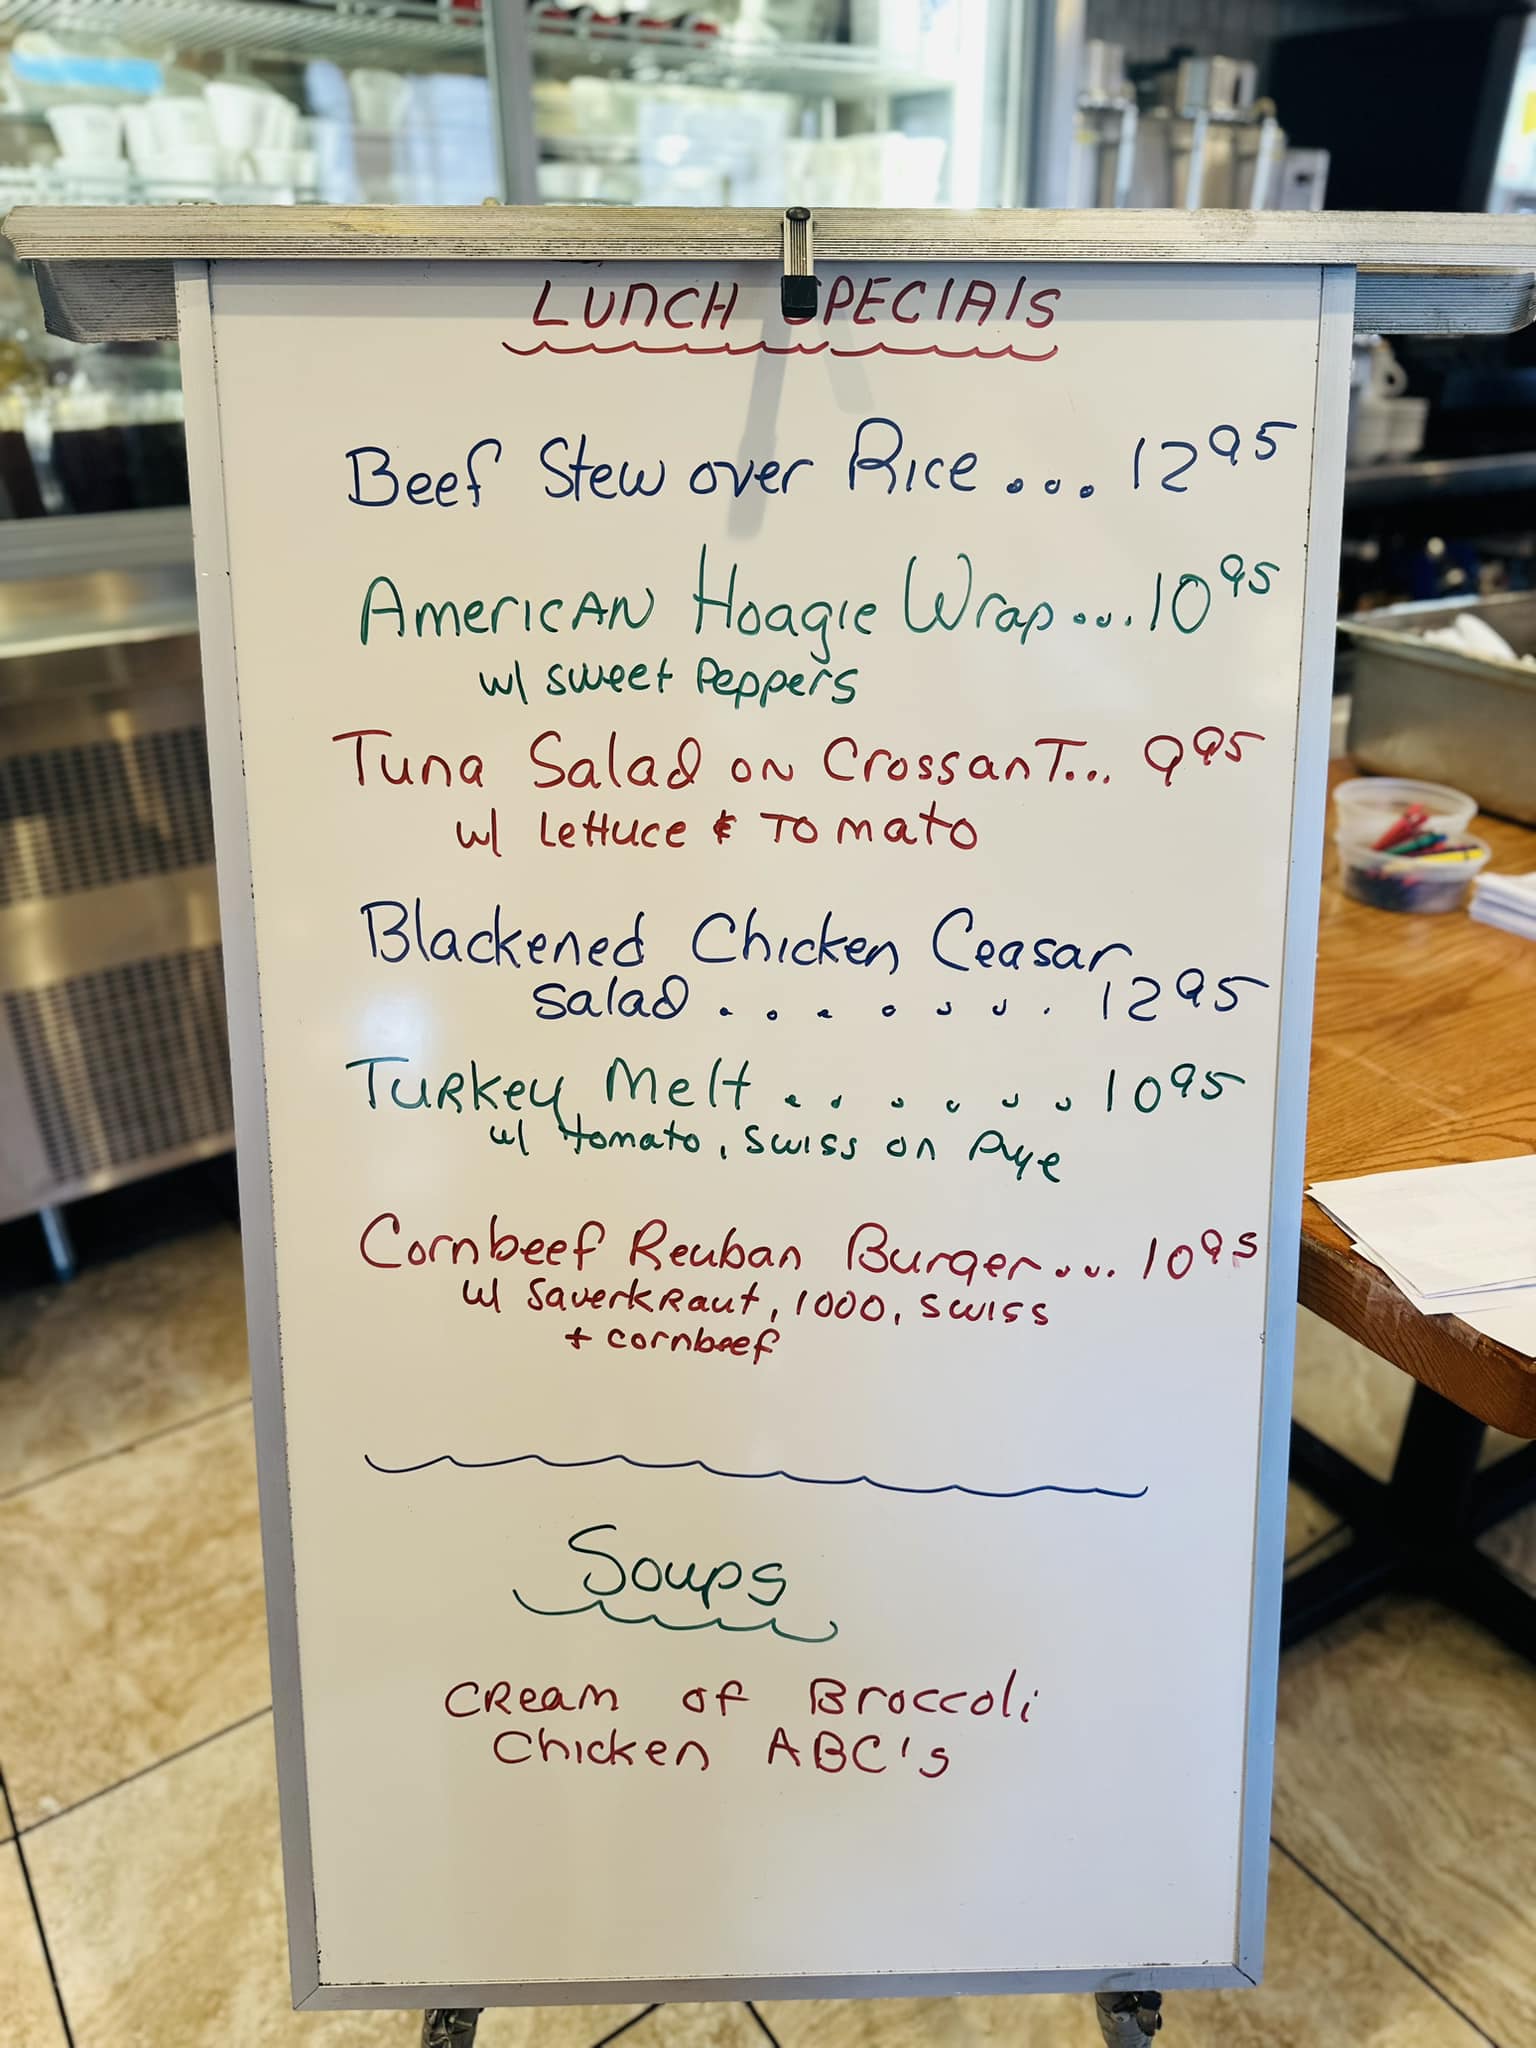 LUNCH SPECIALS
Beef Stew over Rice ... 12 95
AmericAN Hoagie Wrap .... 10 95
w/ sweet Peppers
Tuna Salad on CrossanT... 9 95
w/ Lettuce & Tomato
Blackened Chicken Ceasar
Salad . . . . . . . . 12 95
Turkey Melt . . . . . . 10 95
w/ tomato, Swiss on Rye
Cornbeef Reuban Burger .... 10 95
w/ Sauerkraut, 1000, Swiss
+ cornbeef
Soups
Cream of Broccoli
Chicken ABC's